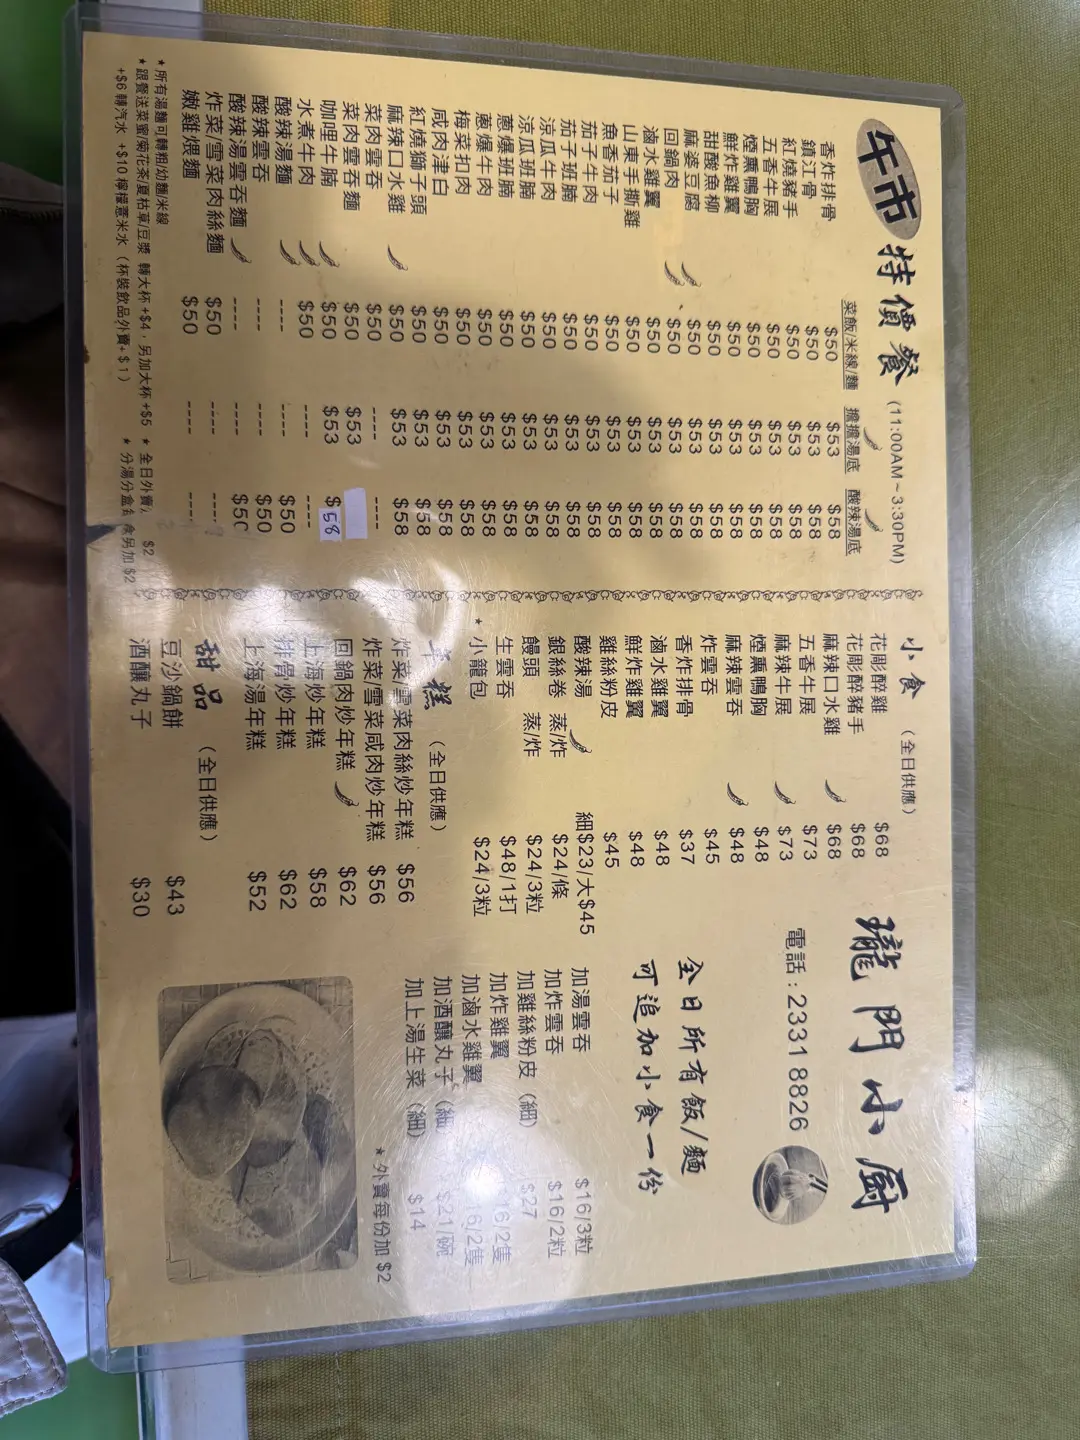 午市 特價餐 (11:00AM~3:30PM)
菜飯/米線/麵 擔擔湯底 酸辣湯底
香炸排骨 $50 $53 $58
鎮江骨 $50 $53 $58
紅燒豬手 $50 $53 $58
五香牛展 $50 $53 $58
煙熏鴨胸 $50 $53 $58
鮮炸雞翼 $50 $53 $58
甜酸魚柳 $50 $53 $58
麻婆豆腐 $50 $53 $58
回鍋肉 $50 $53 $58
滷水雞翼 $50 $53 $58
山東手撕雞 $50 $53 $58
魚香茄子 $50 $53 $58
茄子牛肉 $50 $53 $58
茄子班腩 $50 $53 $58
涼瓜牛肉 $50 $53 $58
涼瓜班腩 $50 $53 $58
蔥爆班腩 $50 $53 $58
蔥爆牛肉 $50 $53 $58
梅菜扣肉 $50 $53 $58
咸肉津白 $50 $53 $58
紅燒獅子頭 $50 $53 $58
麻辣口水雞 $50 $53 $58
菜肉雲吞 $50 ---- ----
菜肉雲吞麵 $50 $53
咖喱牛腩 $50 $53 $58
水煮牛肉 $50 ---- ----
酸辣湯麵 ---- ---- $50
酸辣雲吞 ---- ---- $50
酸辣湯雲吞麵 ---- ---- $50
炸菜/雪菜肉絲麵 $50 ---- ----
嫩雞煨麵 $50 ---- ----
*所有湯麵可轉粗/幼麵/米線
*跟餐送菜蜜/菊花茶/夏枯草/豆漿 轉大杯+$4,另加大杯+$5 *全日外賣 $2
+$6轉汽水 +$10檸檬薏米水(杯裝飲品外賣+$1) *分湯分盒 另加$2
小食 (全日供應)
花彫醉雞 $68
花彫醉豬手 $68
麻辣口水雞 $68
五香牛展 $73
麻辣牛展 $73
煙熏鴨胸 $48
麻辣雲吞 $48
炸雲吞 $45
香炸排骨 $37
滷水雞翼 $48
鮮炸雞翼 $48
雞絲粉皮 $45
酸辣湯 細$23/大$45
銀絲卷 蒸/炸 $24/條
饅頭 蒸/炸 $24/3粒
生雲吞 $48/1打
*小籠包 $24/3粒
年糕 (全日供應)
炸菜/雪菜肉絲炒年糕 $56
炸菜/雪菜咸肉炒年糕 $56
回鍋肉炒年糕 $62
上海炒年糕 $58
排骨炒年糕 $62
上海湯年糕 $52
甜品 (全日供應)
豆沙鍋餅 $43
酒釀丸子 $30
瓏門小廚
電話:2331 8826
全日所有飯/麵
可追加小食一份
加湯雲吞 $16/3粒
加炸雲吞 $16/2粒
加雞絲粉皮(細) $27
加炸雞翼 $16/2隻
加滷水雞翼 $16/2隻
加酒釀丸子(細) $21/碗
加上湯生菜(細) $14
*外賣每份加$2